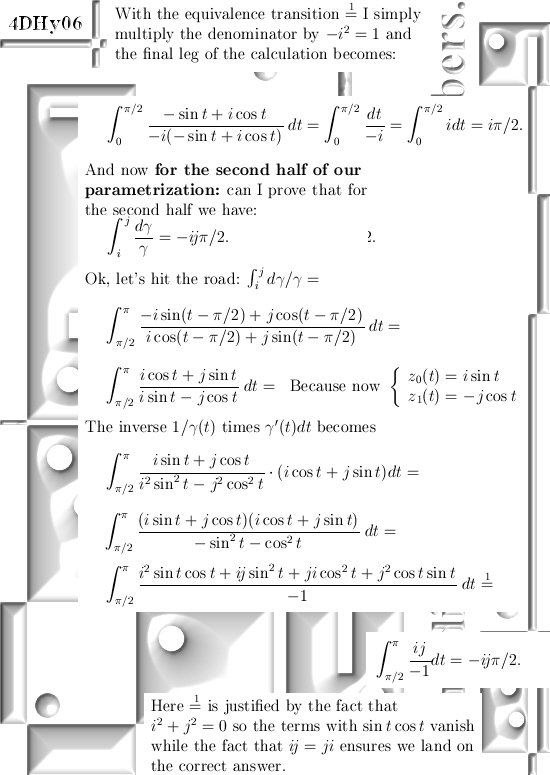 4DHy06
With the equivalence transition $\stackrel{1}{=}$ I simply
multiply the denominator by $-i^2 = 1$ and
the final leg of the calculation becomes:
$\int_0^{\pi/2} \frac{-\sin t + i\cos t}{-i(-\sin t + i\cos t)}\,dt = \int_0^{\pi/2} \frac{dt}{-i} = \int_0^{\pi/2} idt = i\pi/2.$
And now for the second half of our
parametrization: can I prove that for
the second half we have:
$\int_i^j \frac{d\gamma}{\gamma} = -ij\pi/2.$ 2.
Ok, let's hit the road: $\int_i^j d\gamma/\gamma =$
$\int_{\pi/2}^{\pi} \frac{-i\sin(t-\pi/2) + j\cos(t-\pi/2)}{i\cos(t-\pi/2) + j\sin(t-\pi/2)}\,dt =$
$\int_{\pi/2}^{\pi} \frac{i\cos t + j\sin t}{i\sin t - j\cos t}\,dt =$ Because now $\left\{ \begin{array}{l} z_0(t) = i\sin t \\ z_1(t) = -j\cos t \end{array} \right.$
The inverse $1/\gamma(t)$ times $\gamma'(t)dt$ becomes
$\int_{\pi/2}^{\pi} \frac{i\sin t + j\cos t}{i^2\sin^2 t - j^2\cos^2 t} \cdot (i\cos t + j\sin t)dt =$
$\int_{\pi/2}^{\pi} \frac{(i\sin t + j\cos t)(i\cos t + j\sin t)}{-\sin^2 t - \cos^2 t}\,dt =$
$\int_{\pi/2}^{\pi} \frac{i^2\sin t\cos t + ij\sin^2 t + ji\cos^2 t + j^2\cos t\sin t}{-1}\,dt \stackrel{1}{=}$
$\int_{\pi/2}^{\pi} \frac{ij}{-1}dt = -ij\pi/2.$
Here $\stackrel{1}{=}$ is justified by the fact that
$i^2 + j^2 = 0$ so the terms with $\sin t\cos t$ vanish
while the fact that $ij = ji$ ensures we land on
the correct answer.
bers.